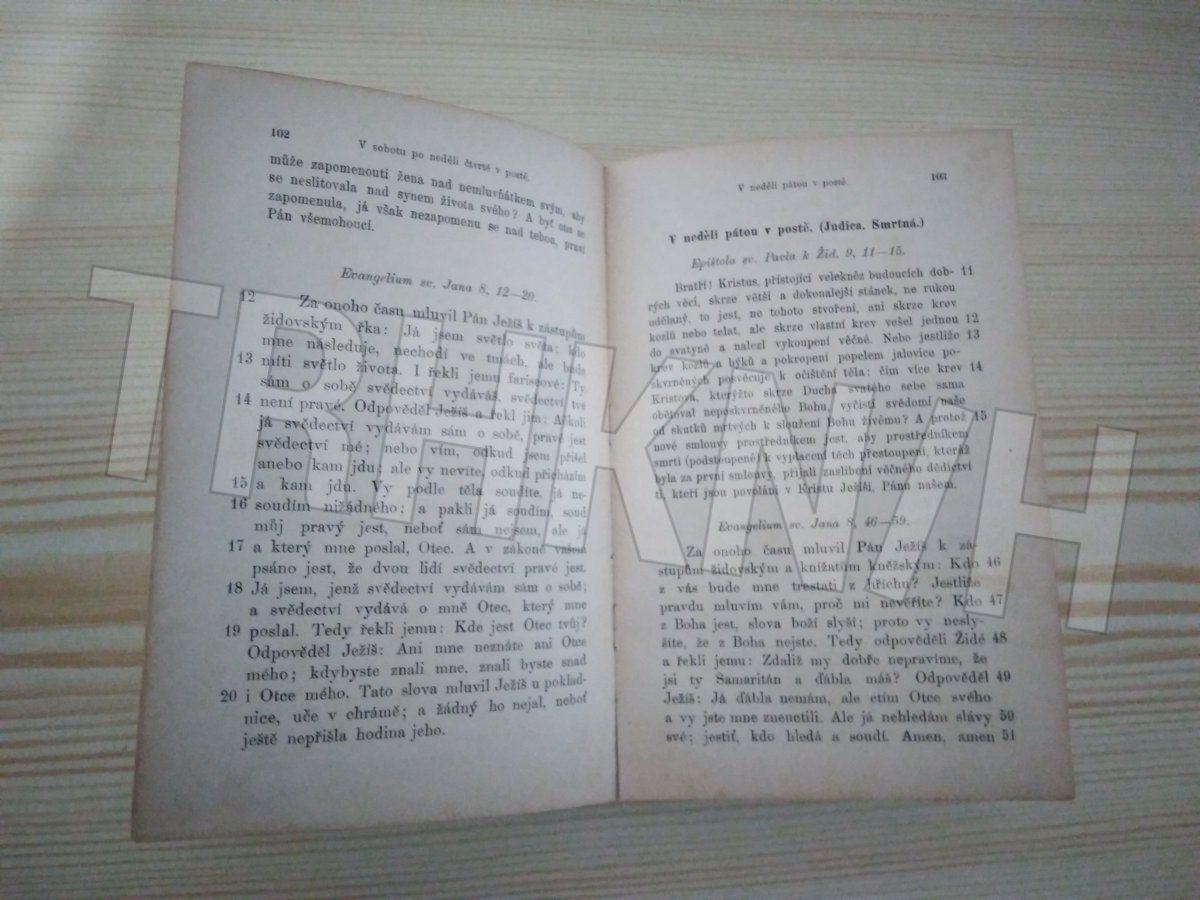 102
V sobotu po neděli čtvrté v postě.
může zapomenouti žena nad nemluvňátkem svým, aby
se neslitovala nad synem života svého? A byť ona se
zapomenula, já však nezapomenu se nad tebou, praví
Pán všemohoucí.
Evangelium sv. Jana 8, 12—20.
12 Za onoho času mluvil Pán Ježíš k zástupům
židovským řka: Já jsem světlo světa; kdo
mne následuje, nechodí ve tmách, ale bude
13 míti světlo života. I řekli jemu fariseové: Ty
sám o sobě svědectví vydáváš, svědectví tvé
14 není pravé. Odpověděl Ježíš a řekl jim: Ačkoli
já svědectví vydávám sám o sobě, pravé jest
svědectví mé; nebo vím, odkud jsem přišel
anebo kam jdu; ale vy nevíte, odkud přicházím
15 a kam jdu. Vy podle těla soudíte, já ne-
16 soudím nižádného; a pakli já soudím, soud
můj pravý jest, neboť sám nejsem, ale já
17 a který mne poslal, Otec. A v zákoně vašem
psáno jest, že dvou lidí svědectví pravé jest.
18 Já jsem, jenž svědectví vydávám sám o sobě;
a svědectví vydává o mně Otec, který mne
19 poslal. Tedy řekli jemu: Kde jest Otec tvůj?
Odpověděl Ježíš: Ani mne neznáte ani Otce
mého; kdybyste znali mne, znali byste snad
20 i Otce mého. Tato slova mluvil Ježíš u poklad-
nice, uče v chrámě; a žádný ho nejal, neboť
ještě nepřišla hodina jeho.
V neděli pátou v postě. 103
V neděli pátou v postě. (Judica. Smrtná.)
Epištola sv. Pavla k Žid. 9, 11—15.
Bratří! Kristus, přístojící velekněz budoucích dob- 11
rých věcí, skrze větší a dokonalejší stánek, ne rukou
udělaný, to jest, ne tohoto stvoření, ani skrze krev
kozlů nebo telat, ale skrze vlastní krev vešel jednou 12
do svatyně a nalezl vykoupení věčné. Nebo jestliže 13
krev kozlů a býků a pokropení popelem jalovice po-
skvrněných posvěcuje k očištění těla: čím více krev 14
Kristova, kterýžto skrze Ducha svatého sebe sama
obětoval neposkvrněného Bohu, vyčistí svědomí naše
od skutků mrtvých k sloužení Bohu živému? A protož 15
nové smlouvy prostředníkem jest, aby prostředníkem
smrti (podstoupené) k vyplacení těch přestoupení, kteráž
byla za první smlouvy, přijali zaslíbení věčného dědictví
ti, kteří jsou povoláni v Kristu Ježíši, Pánu našem.
Evangelium sv. Jana 8, 46—59.
Za onoho času mluvil Pán Ježíš k zá-
stupům židovským a knížatům kněžským: Kdo 46
z vás bude mne trestati z hříchu? Jestliže
pravdu mluvím vám, proč mi nevěříte? Kdo 47
z Boha jest, slova boží slyší; proto vy nesly-
šíte, že z Boha nejste. Tedy odpověděli Židé 48
a řekli jemu: Zdaliž my dobře nepravíme, že
jsi ty Samaritán a ďábla máš? Odpověděl 49
Ježíš: Já ďábla nemám, ale ctím Otce svého
a vy jste mne zneuctili. Ale já nehledám slávy 50
své; jestiť, kdo hledá a soudí. Amen, amen 51